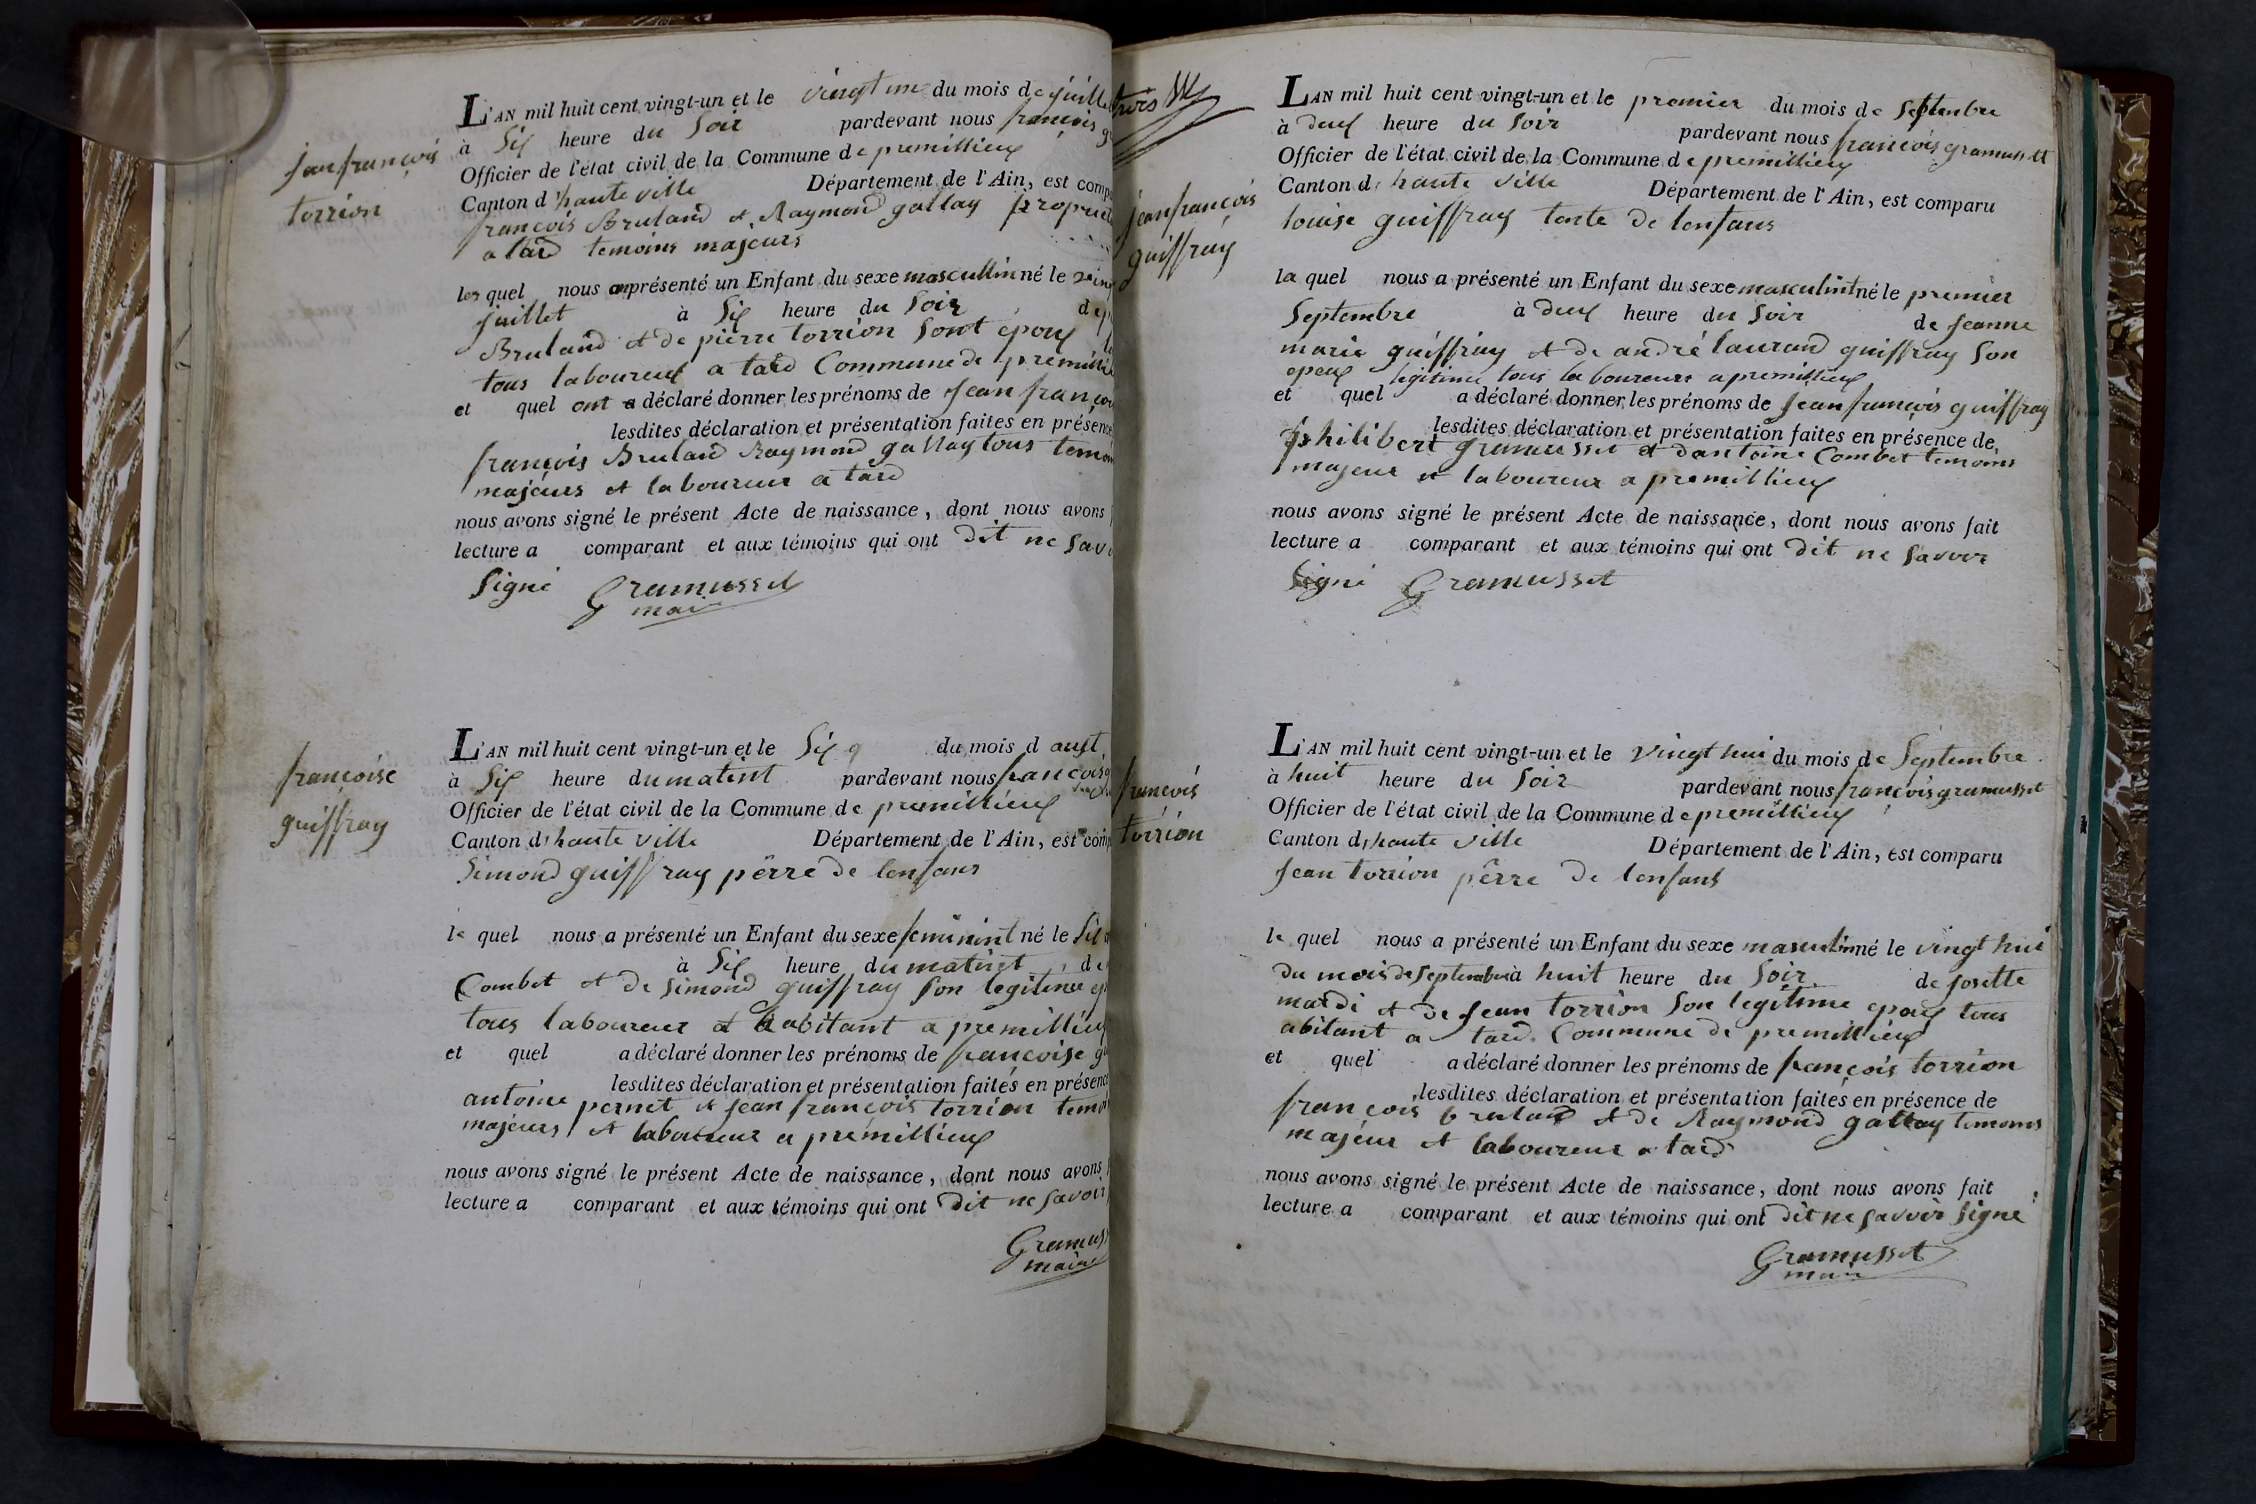 jean françois
torrion
L'AN mil huit cent vingt-un et le vingt un du mois de juillet
à Six heure du Soir pardevant nous françois
Officier de l'état civil de la Commune de premillieux
Canton d'haute ville Département de l'Ain, est comp
françois Bruland et Raymond gallay propriet
a tard temoins majeurs
les quel nous on présenté un Enfant du sexe mascullin né le
juillet à Six heure du Soir de
Bruland et de pierre torrion Sont epoux
tous laboureux a tard Commune de premillie
et quel ont a déclaré donner les prénoms de Jean françoi
lesdites déclaration et présentation faites en présence
françois Bruland Raymond gallay tous temoi
majeurs et laboureur a tard
nous avons signé le présent Acte de naissance, dont nous avons
lecture a comparant et aux témoins qui ont dit ne Savo
Signé Gramusset
maire
françoise
guiffray
L'AN mil huit cent vingt-un et le Six du mois d aust
à Six heure du matint pardevant nous francois
Officier de l'état civil de la Commune de premillieux
Canton d'haute ville Département de l'Ain, est com
Simond guiffray pêrre de lenfans
le quel nous a présenté un Enfant du sexe feminint né le Six
à Six heure du matint de
Combet et de Simond guiffray Son legitime ep
tous laboureur et habitant a premillieux
et quel a déclaré donner les prénoms de françoise
lesdites déclaration et présentation faites en présence
antoine pernet et Jean françois torrion temoi
majeurs et laboureur a premillieux
nous avons signé le présent Acte de naissance, dont nous avons
lecture a comparant et aux témoins qui ont dit ne Savoir
Gramuss
maire
trois
jean françois
guiffray
L'AN mil huit cent vingt-un et le premier du mois de Septembre
à deux heure du Soir pardevant nous françois gramusset
Officier de l'état civil de la Commune de premillieux
Canton d'haute ville Département de l'Ain, est comparu
louise guiffray tente de lenfans
la quel nous a présenté un Enfant du sexe masculint né le premier
Septembre à deux heure du Soir de Jeanne
marie guiffray et de andré laurand guiffray Son
epeux legitime tous laboureur a premillieux
et quel a déclaré donner les prénoms de Jean françois guiffray
lesdites déclaration et présentation faites en présence de
philibert gramusset et dantoine Combet temoins
majeur et laboureur a premillieux
nous avons signé le présent Acte de naissance, dont nous avons fait
lecture a comparant et aux témoins qui ont dit ne Savoir
Signé Gramusset
francois
torrion
L'AN mil huit cent vingt-un et le vingt hui du mois de Septembre
à huit heure du Soir pardevant nous françois gramusset
Officier de l'état civil de la Commune de premillieux
Canton d'haute ville Département de l'Ain, est comparu
Jean torrion pêrre de lenfans
le quel nous a présenté un Enfant du sexe masculin né le vingt hui
du mois de Septembre à huit heure du Soir de Josette
mardi et de Jean torrion Son legitime epoux tous
abitant a tard Commune de premillieux
et quel a déclaré donner les prénoms de françois torrion
lesdites déclaration et présentation faites en présence de
françois bruland et de Raymond gallay temoins
majeur et laboureur a tard
nous avons signé le présent Acte de naissance, dont nous avons fait
lecture a comparant et aux témoins qui ont dit ne savoir signé
Gramusset
maire